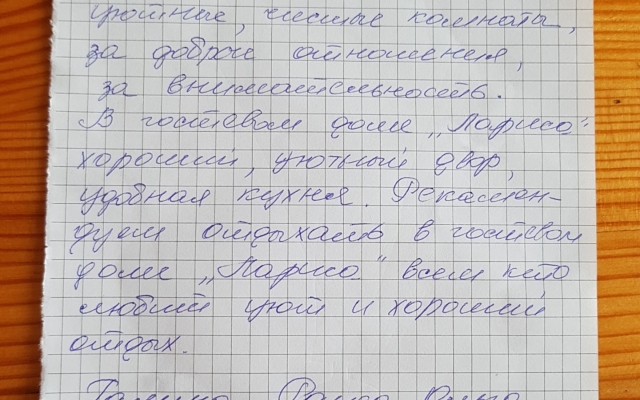 уютные, чистые комнаты,
за доброе отношения,
за внимательность.
В гостевом доме „Лариса"
хороший, уютный двор,
удобная кухня. Рекамен-
дуем отдыхать в гостевом
доме „Лариса" всем кто
любит уют и хороший
отдых.